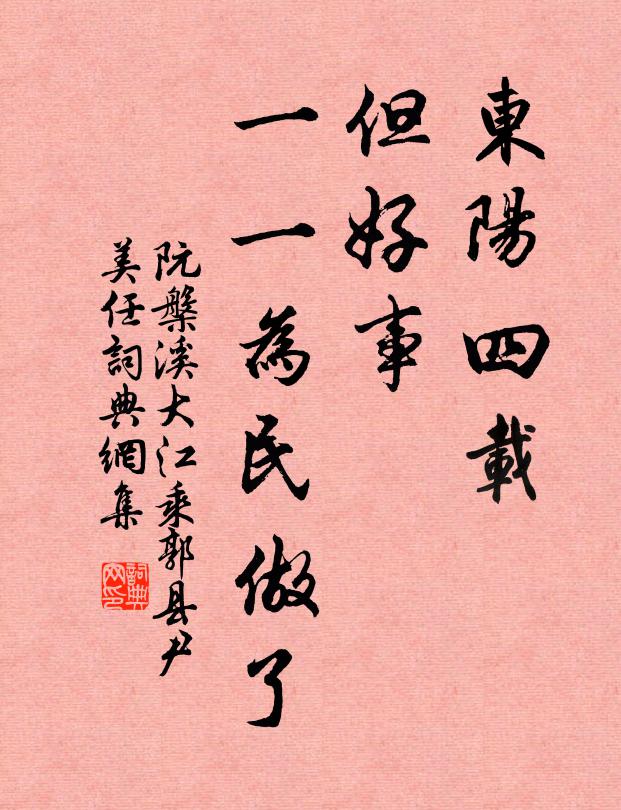 東陽四載
但好事
一一為民做了
阮槃溪大江乘郭县尹
美任詞典網集
詞典網印